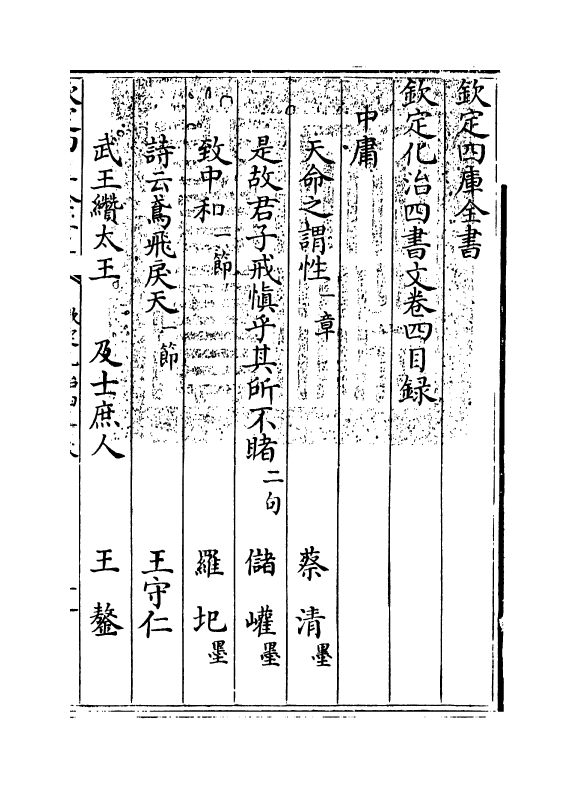 欽定四庫全書
欽定化治四書文卷四目録
中庸
天命之謂性一章 蔡清墨
是故君子戒慎乎其所不睹二句 儲巏墨
致中和一節 羅圯墨
詩云鳶飛戾天一節 王守仁
武王纘太王 及士庶人 王鏊